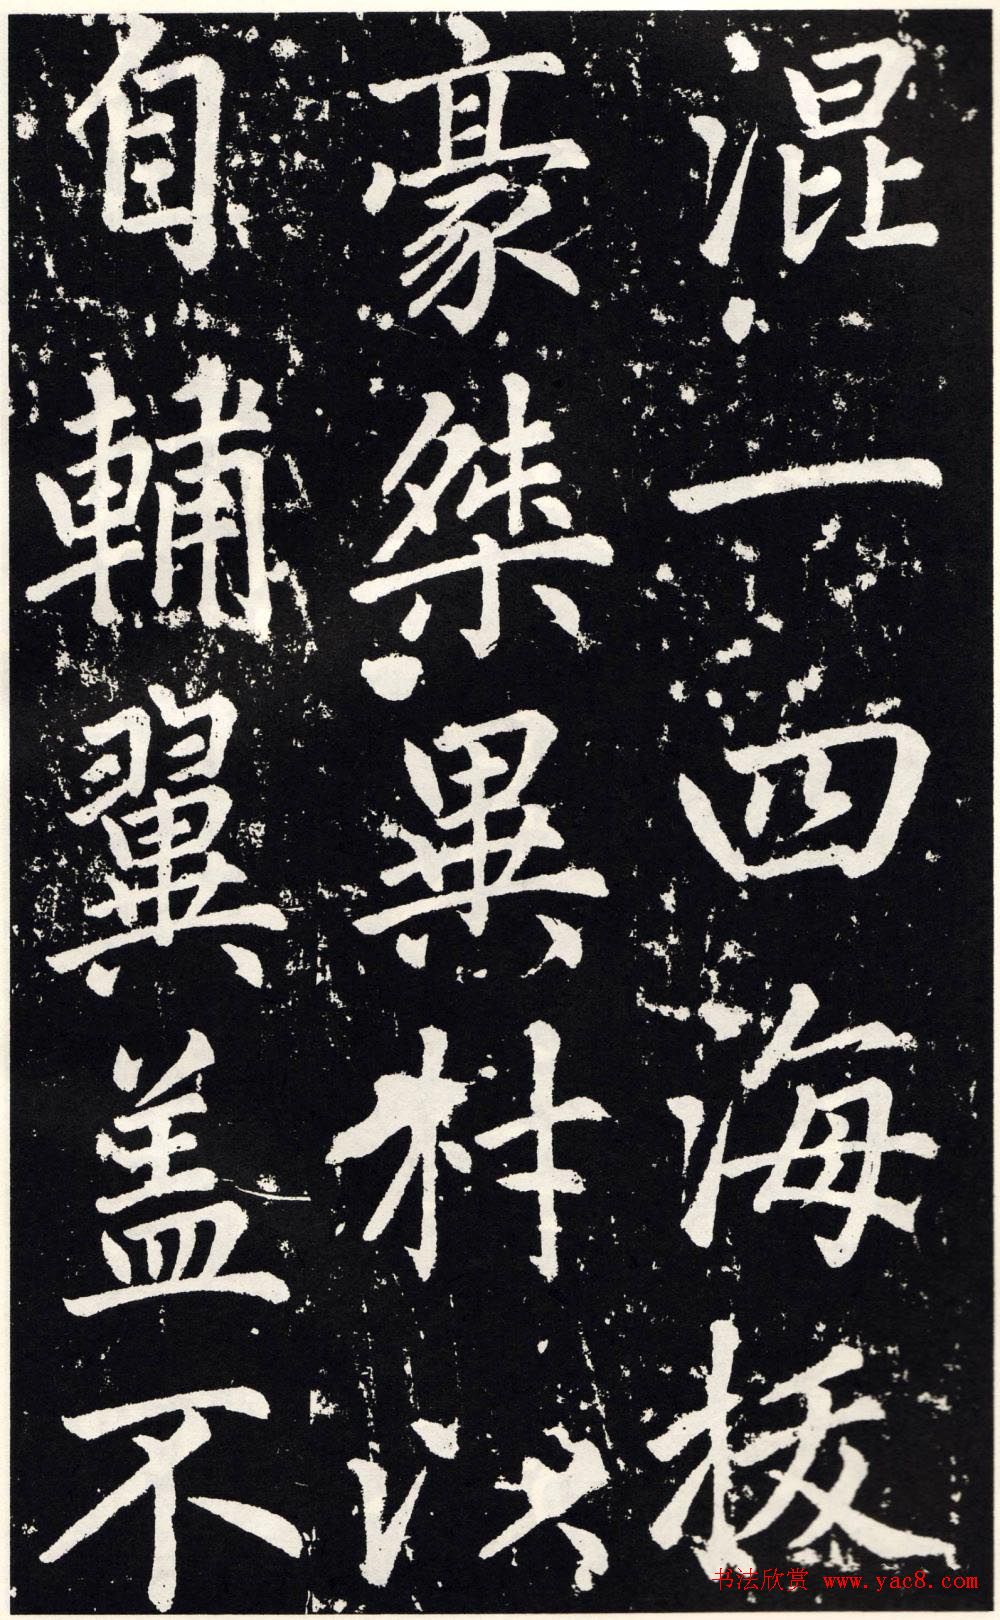 混一四海拔
豪桀異材以
自輔翼盖不
书法欣赏 www.yac8.com